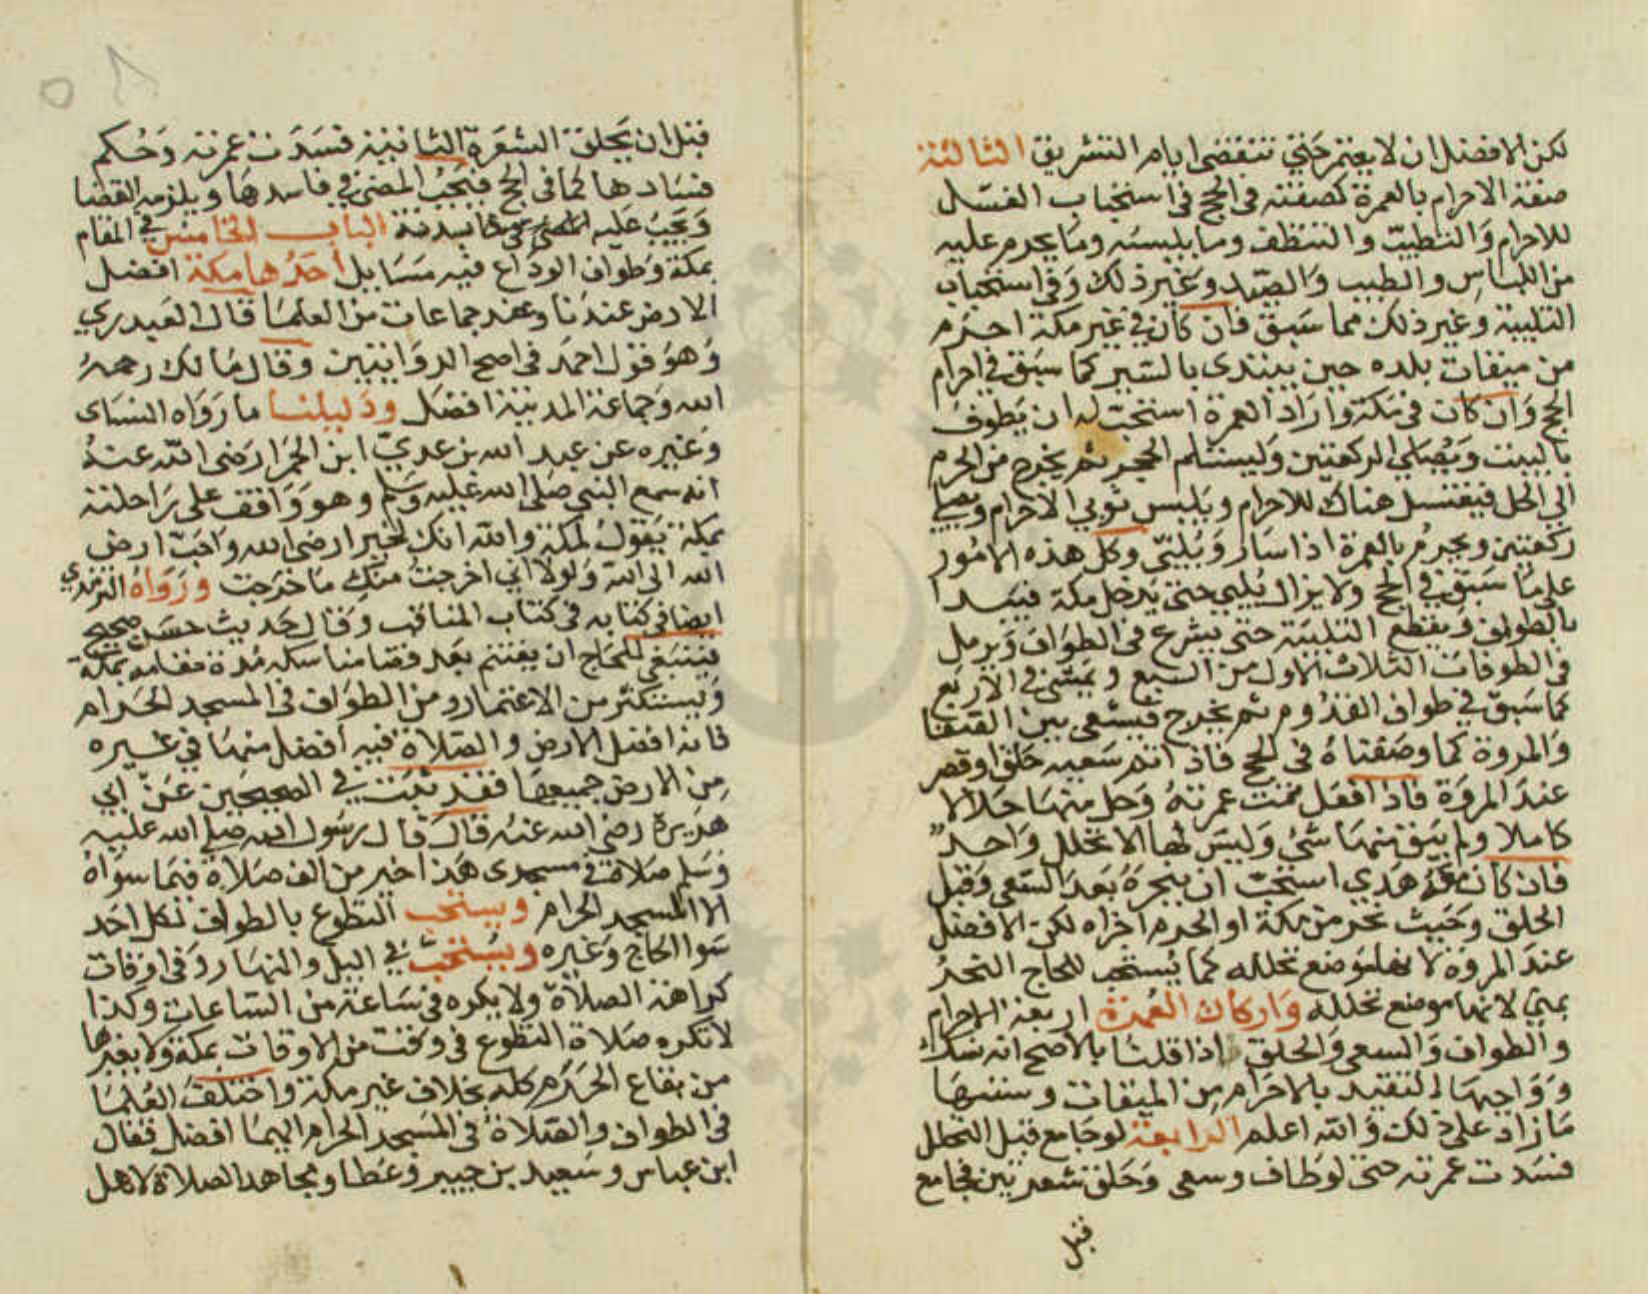 لكن الافضل ان لا يعتمر حتي تنقضي ايام التشريق الثالثة
صفة الاحرام بالعمرة كصفته في الحج في استحباب الغسل
للاحرام والتطيب والتنظف وما يلبسه وما يحرم عليه
من اللباس والطيب والصيد وغير ذلك وفي استحباب
التلبية وغير ذلك مما سبق فان كان في غير مكة احرم
من ميقات بلده حين يبتدي بالسير كما سبق في احرام
الحج وان كان في مكة واراد العمرة استحب له ان يطوف
بالبيت ويصلي الركعتين وليستلم الحجر ثم يخرج من الحرم
الي الحل فيغتسل هناك للاحرام ويلبس ثوبي الاحرام ويصلي
ركعتين ويحرم بالعمرة اذا سار ويلبي وكل هذه الامور
علي ما سبق في الحج ولا يزال يلبي حتي يدخل مكة فيبدا
بالطواف ويقطع التلبية حتي يشرع في الطواف ويرمل
في الطوفات الثلاث الاول من السبع ويمشي في الاربع
كما سبق في طواف القدوم ثم يخرج فيسعي بين الصفا
والمروة كما وصفناه في الحج فاذا اتم سعيه حلق او قصر
عند المروة فاذا فعل تمت عمرته وحل منها حلالا
كاملا ولم يبق منها شي وليس لها الا تحلل واحد
فان كان معه هدي استحب ان ينحره بعد السعي وقبل
الحلق وحيث نحر من مكة او الحرم اجزاه لكن الافضل
عند المروة لانها موضع تحلله كما يستحب للحاج النحر
بمني لانها موضع تحلله واركان العمرة اربعة الاحرام
والطواف والسعي والحلق اذا قلنا بالاصح انه نسك
وواجبها التقيد بالاحرام من الميقات وسننها
ما زاد علي ذلك والله اعلم الرابعة لو جامع قبل التحلل
فسدت عمرته حتي لو طاف وسعي وحلق شعرتين فجامع
قبل
قبل ان يحلق الشعرة الثانية فسدت عمرته وحكم
فسادها كما في الحج فيجب المضي في فاسدها ويلزمه القضا
ويجب عليه بدنة الباب الخامس في المقام
بمكة وطواف الوداع فيه مسايل احدها مكة افضل
الارض عندنا وعند جماعات من العلما قال العبدري
وهو قول احمد في اصح الروايتين وقال مالك رحمه
الله وجماعة المدينة افضل ودليلنا ما رواه النساي
وغيره عن عبد الله بن عدي ابن الحمرا رضي الله عنه
انه سمع النبي صلي الله عليه وسلم وهو واقف علي راحلته
بمكة يقول لمكة والله انك لخير ارض الله واحب ارض
الله الي الله ولولا اني اخرجت منك ما خرجت ورواه الترمذي
ايضا في كتابه في كتاب المناقب وقال حديث حسن صحيح
فينبغي للحاج ان يغتنم بعد قضا مناسكه مدة مقامه بمكة
ويستكثر من الاعتمار ومن الطواف في المسجد الحرام
فانه افضل الارض والصلاة فيه افضل منها في غيره
من الارض جميعها فقد ثبت في الصحيحين عن ابي
هريرة رضي الله عنه قال قال رسول الله صلي الله عليه
وسلم صلاة في مسجدي هذا خير من الف صلاة فيما سواه
الا المسجد الحرام ويستحب التطوع بالطواف لكل احد
سوا الحاج وغيره ويستحب في اليل والنهار وفي اوقات
كراهة الصلاة ولا يكره في ساعة من الساعات وكذا
لا تكره صلاة التطوع في وقت من الاوقات بمكة ولا بغيرها
من بقاع الحرم كله بخلاف غير مكة واختلف العلما
في الطواف والصلاة في المسجد الحرام ايهما افضل فقال
ابن عباس وسعيد بن جبير وعطا ومجاهد الصلاة لاهل